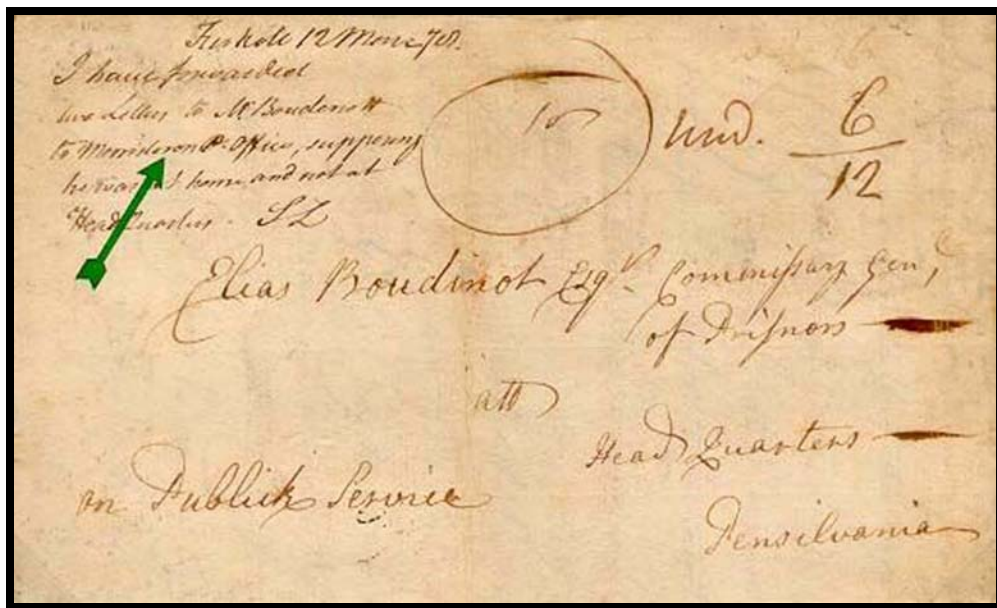 12
I have forwarded
two Letters to Mr Boudenott
to Morristown P. Office, supposing
he was at home and not at
Head Quarters - S L
Und. 6
12
Elias Boudinot Esqr. Commissary Genl
of Prisnors
att
Head Quarters
on Publick Service
Pensilvania